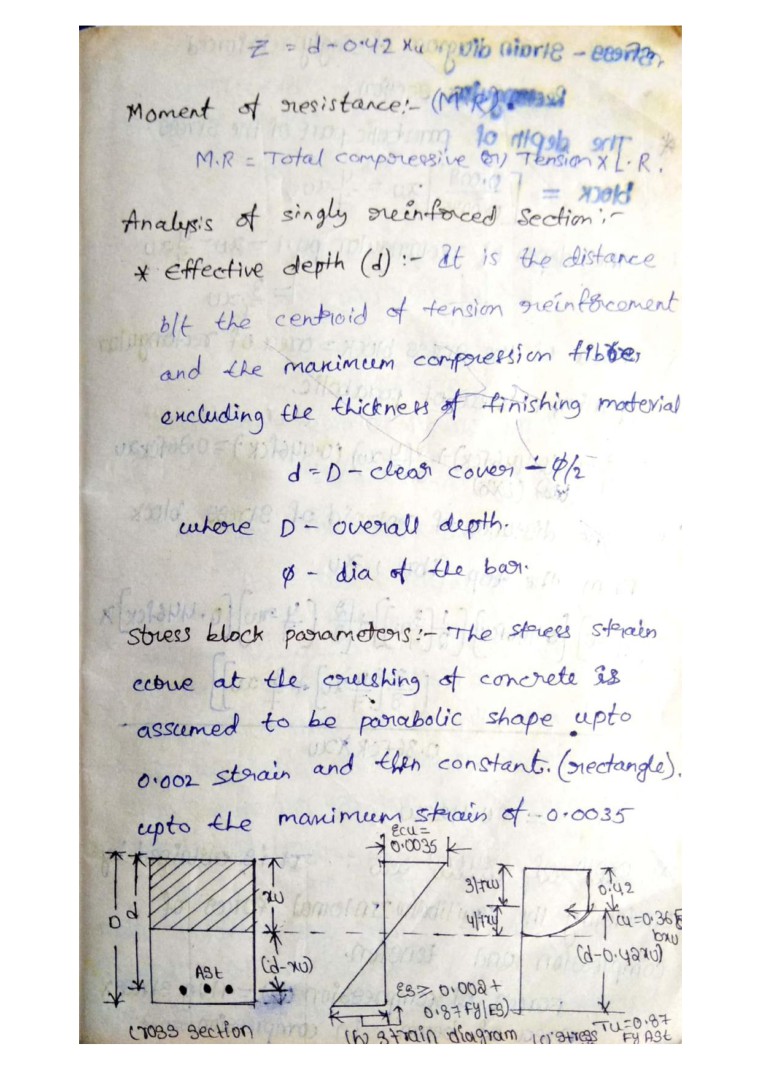 Z = d - 0.42 xu
Moment of resistance:- (M.R).
M.R = Total compressive (or) Tension x L.R.
Analysis of singly reinforced section:-
* Effective depth (d) :- It is the distance
b/t the centroid of tension reinforcement
and the maximum compression fibre,
excluding the thickness of finishing material
d = D - clear cover - φ/2
where D - overall depth.
φ - dia of the bar.
Stress block parameters:- The stress strain
curve at the crushing of concrete is
assumed to be parabolic shape upto
0.002 strain and then constant. (rectangle).
upto the maximum strain of 0.0035
D
d
xu
(d-xu)
Ast
cross section
εcu =
0.0035
εs ≥ 0.002 +
0.87 fy/Es)
(b) strain diagram
3/7xu
4/7xu
0.42
cu = 0.36 f
bxu
(d-0.42xu)
Tu = 0.87
Fy Ast
(c) stress